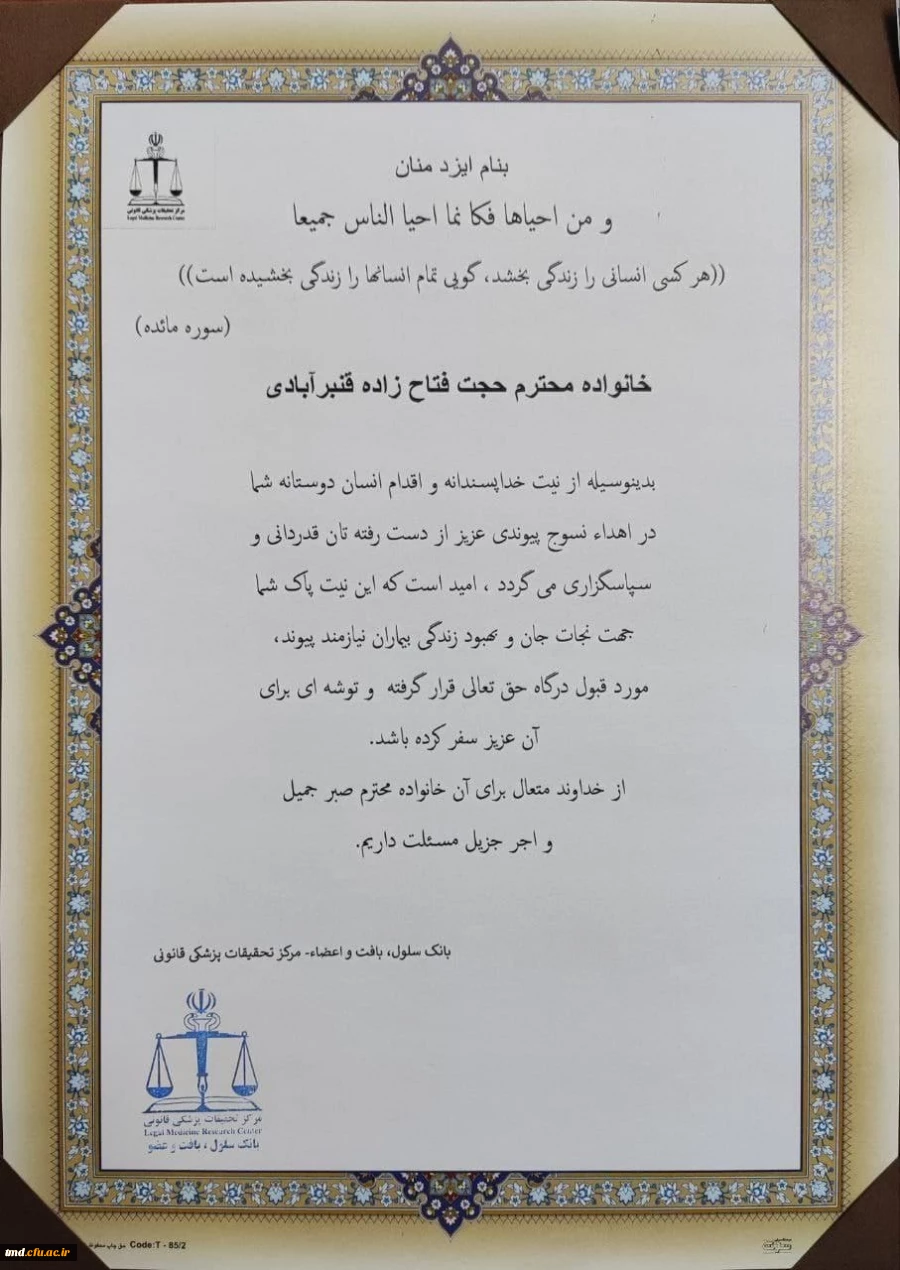 مرکز تحقیقات پزشکی قانونی
Legal Medicine Research Center
بنام ایزد منان
و من احیاها فکا نما احیا الناس جمیعا
((هر کسی انسانی را زندگی بخشد، گویی تمام انسانها را زندگی بخشیده است))
(سوره مائده)
خانواده محترم حجت فتاح زاده قنبرآبادی
بدینوسیله از نیت خداپسندانه و اقدام انسان دوستانه شما
در اهداء نسوج پیوندی عزیز از دست رفته تان قدردانی و
سپاسگزاری می گردد ، امید است که این نیت پاک شما
جهت نجات جان و بهبود زندگی بیماران نیازمند پیوند،
مورد قبول درگاه حق تعالی قرار گرفته و توشه ای برای
آن عزیز سفر کرده باشد.
از خداوند متعال برای آن خانواده محترم صبر جمیل
و اجر جزیل مسئلت داریم.
بانک سلول، بافت و اعضاء- مرکز تحقیقات پزشکی قانونی
مرکز تحقیقات پزشکی قانونی
Legal Medicine Research Center
بانک سلول ، بافت و عضو
Code:T - 85/2
tmd.cfu.ac.ir